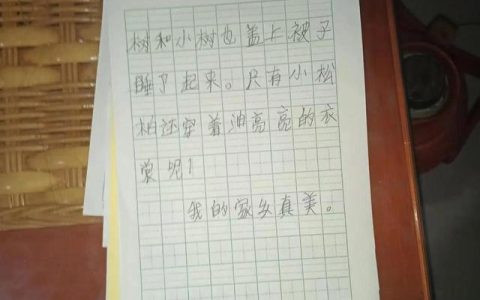 树和小树也盖上被子
睡了起来。只有小松
柏还穿着油高亮的衣
裳呢！
我的家乡真美。